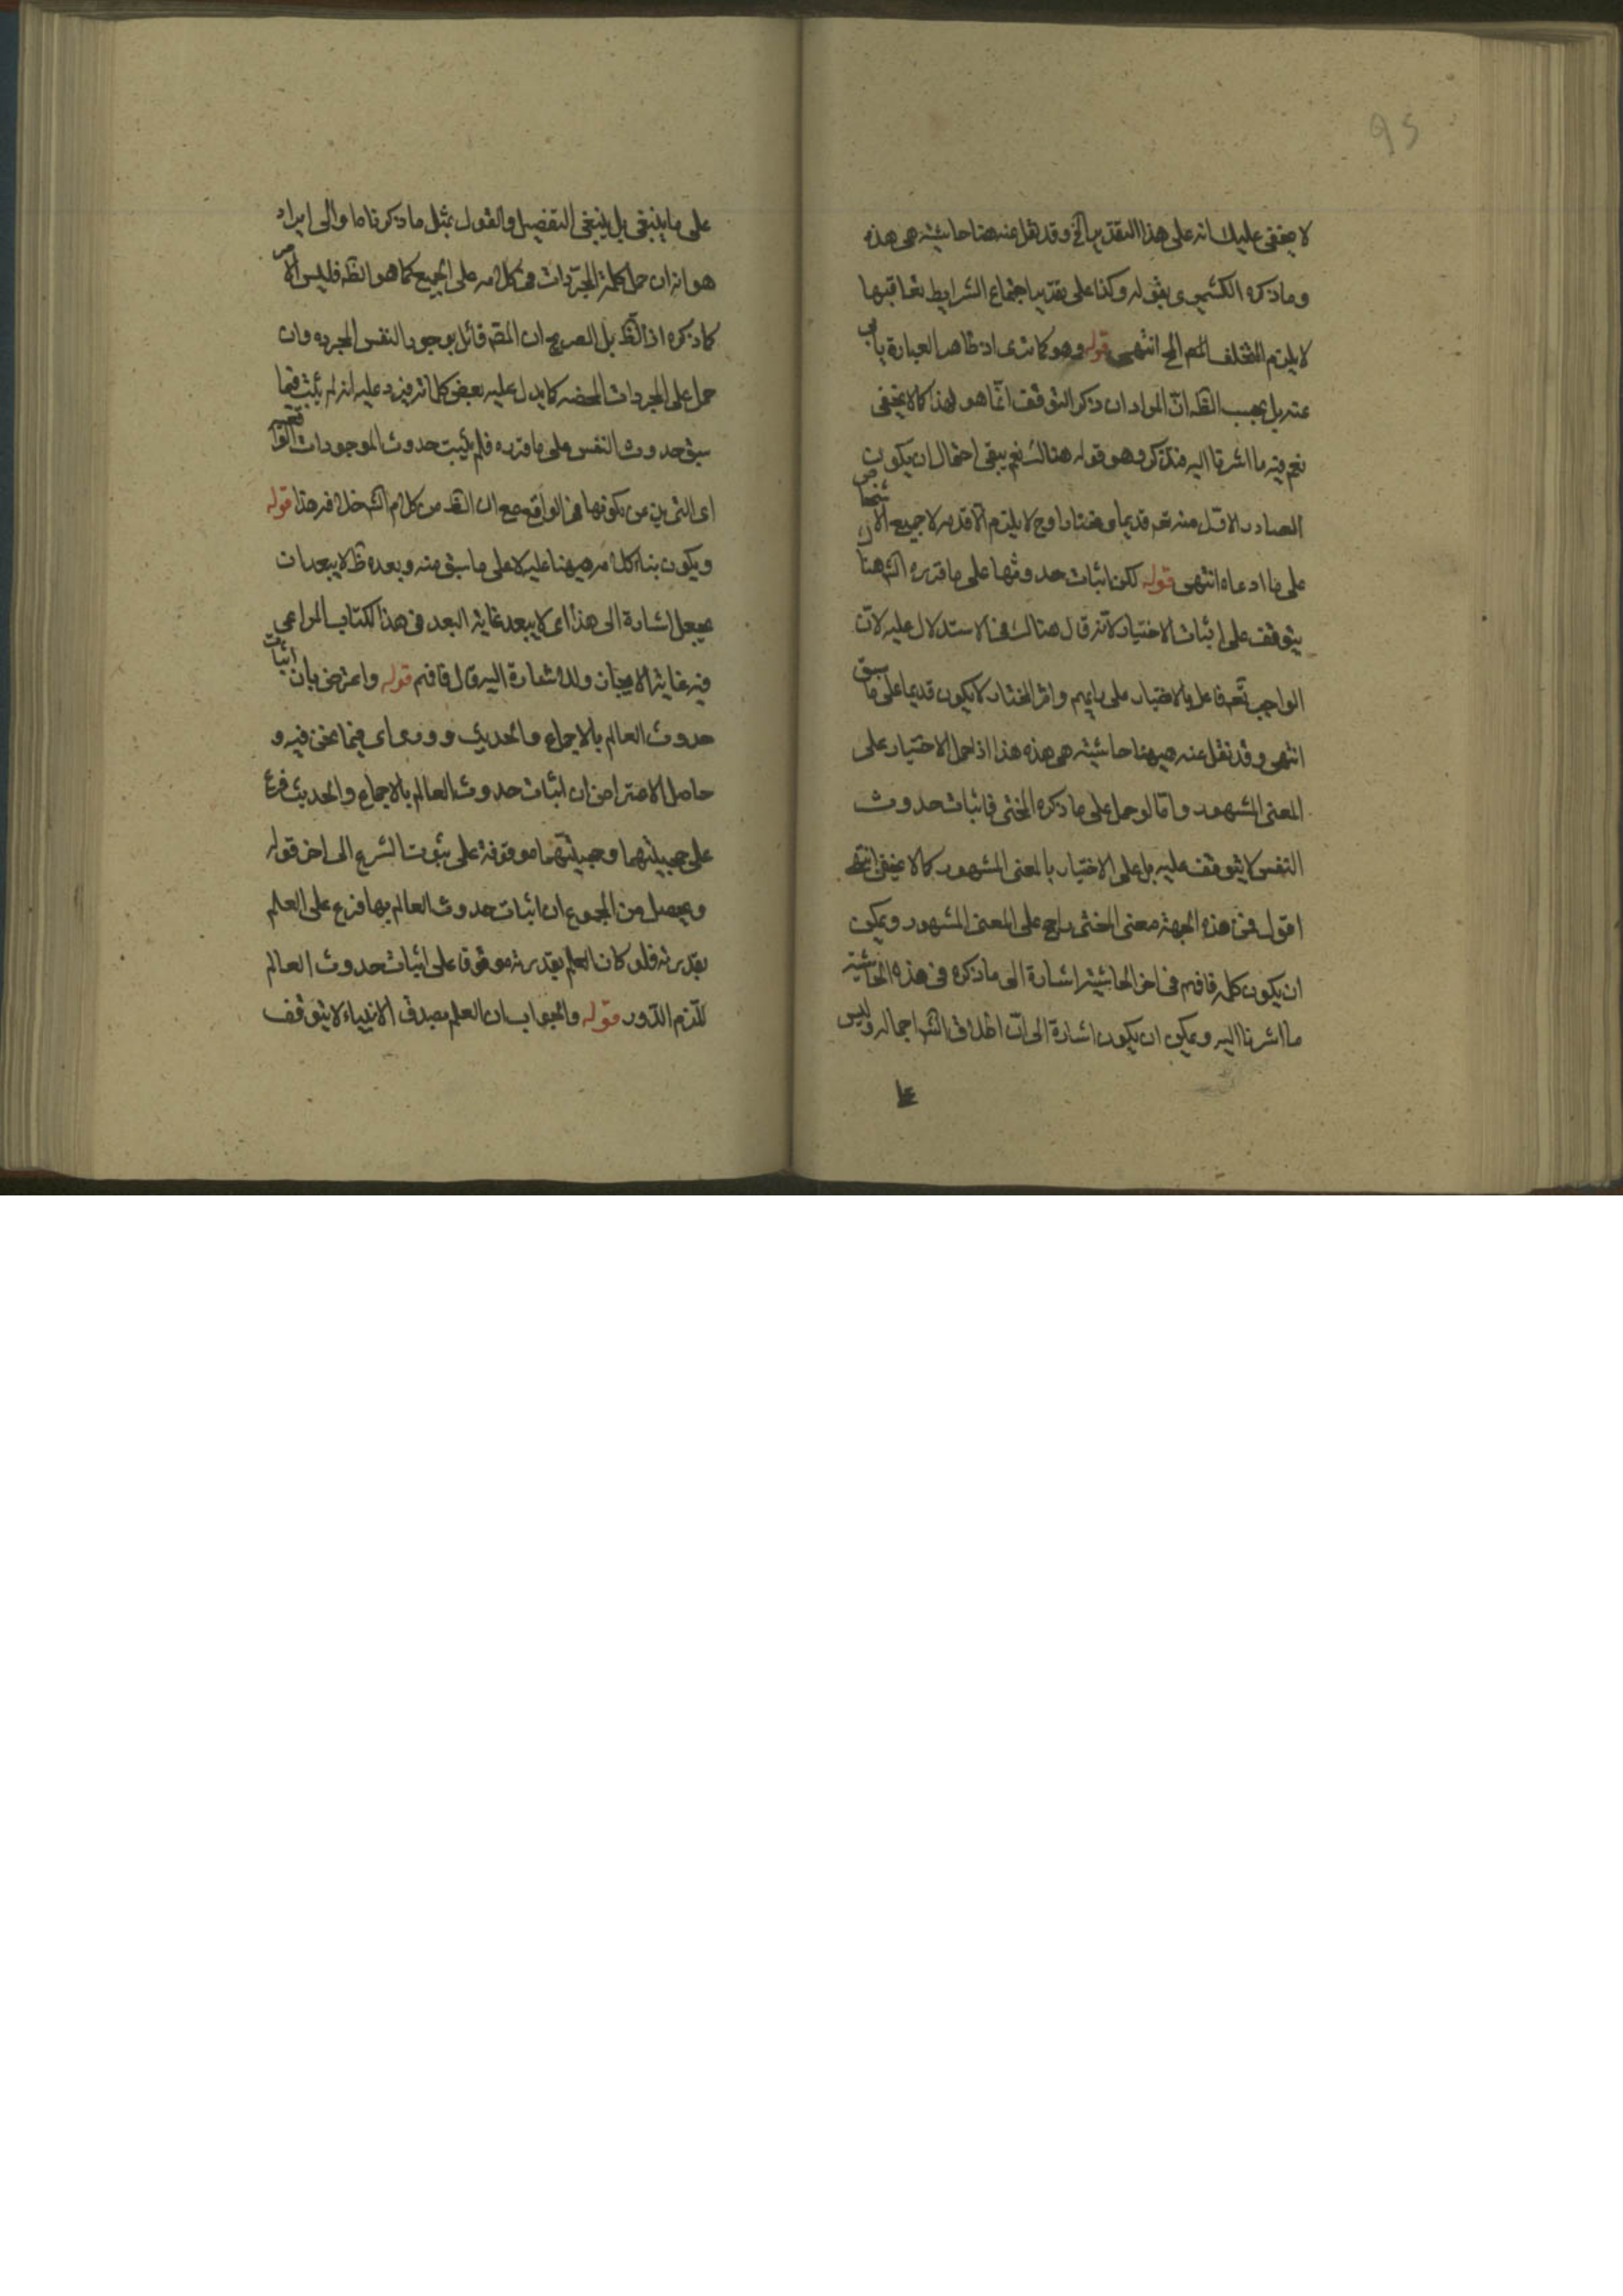 95
لا يخفى عليك انه على هذا التقدير الخ وقد نقل عنه هنا حاشيته هى هذه
وما ذكره الكشميرى بقوله وكذا على تقدير اجتماع الشرايط بتعاقبها
لا يلزم التخلف الخ انتهى قوله وهو كما ترى اذ ظاهر العبارة يابى
عنه بل بحسب الظ ان المراد ان ذكر التوقف انما هو لهذا كما لا يخفى
نعم فيه ما اشرنا اليه فتذكر وهو قوله هنالك نعم يبقى احتمال ان يكون
الصادر الاول منه تعم قديما ومختارا وح لا يلزم الا قدمه لا جميع الاشخاص
على ما ادعاه انتهى قوله لكن اثبات حدوثها على ما قرره الش هنا
يتوقف على اثبات الاختيار لانه قال هنالك فى الاستدلال عليه لان
الواجب تعم فاعل بالاختيار على رايهم واثر المختار لا يكون قديما على ما سبق
انتهى وقد نقل عنه هيهنا حاشيته هى هذه هذا اذا حمل الاختيار على
المعنى المشهور واما لو حمل على ما ذكره المحشى فاثبات حدوث
النفس لا يتوقف عليه بل على الاختيار بالمعنى المشهور كما لا يخفى انتهى
اقول فمن هذه الجهة معنى المحشى راجح على المعنى المشهور ويمكن
ان يكون كله فافهم فى اخر الحاشية اشارة الى ما ذكره فى هذه الحاشية
ما اشرنا اليه ويمكن ان يكون اشارة الى ان اطلاق الش اجماله وليس
على
على ما ينبغى بل ينبغى التفصيل والقول بمثل ما ذكرناها والى ايراد
هو انه ان حمل كلمة المجردات فى كلامه على الجميع كما هو الظ فليس الامر
كما ذكره اذ الظ بل الصريح ان المصم قائل بوجود النفس المجرده وان
حمل على المجردات المحضه كما يدل عليه بعض كلماته فيرد عليه انه لم يثبت فيما
سبق حدوث النفس على ما قرره فلم يثبت حدوث الموجودات
اى التى من كونها فى الواقع مع ان القد من كلام الش خلافه هذا قوله
ويكون بناء كلامه هيهنا عليه لا على ما سبق منه وبعده ظ لا يبعد ان
يجعل اشارة الى هذا اى لا يبعد غاية البعد فى هذا الكتاب المراعى
فيه غاية الايجاز وللاشارة اليه قال فافهم قوله واعترض بان اثبات
حدوث العالم بالاجماع والحديث دورى اى فيما نحن فيه و
حاصل الاعتراض ان اثبات حدوث العالم بالاجماع والحديث فرع
على حجيتهما وحجيتهما موقوفة على ثبوت الشرع الى اخر قوله
ويحصل من المجموع ان اثبات حدوث العالم بها فرع على العلم
بقدرته فلو كان العلم بقدرته موقوفا على اثبات حدوث العالم
للزم الدور قوله والجواب ان العلم بصدق الانبياء لا يتوقف